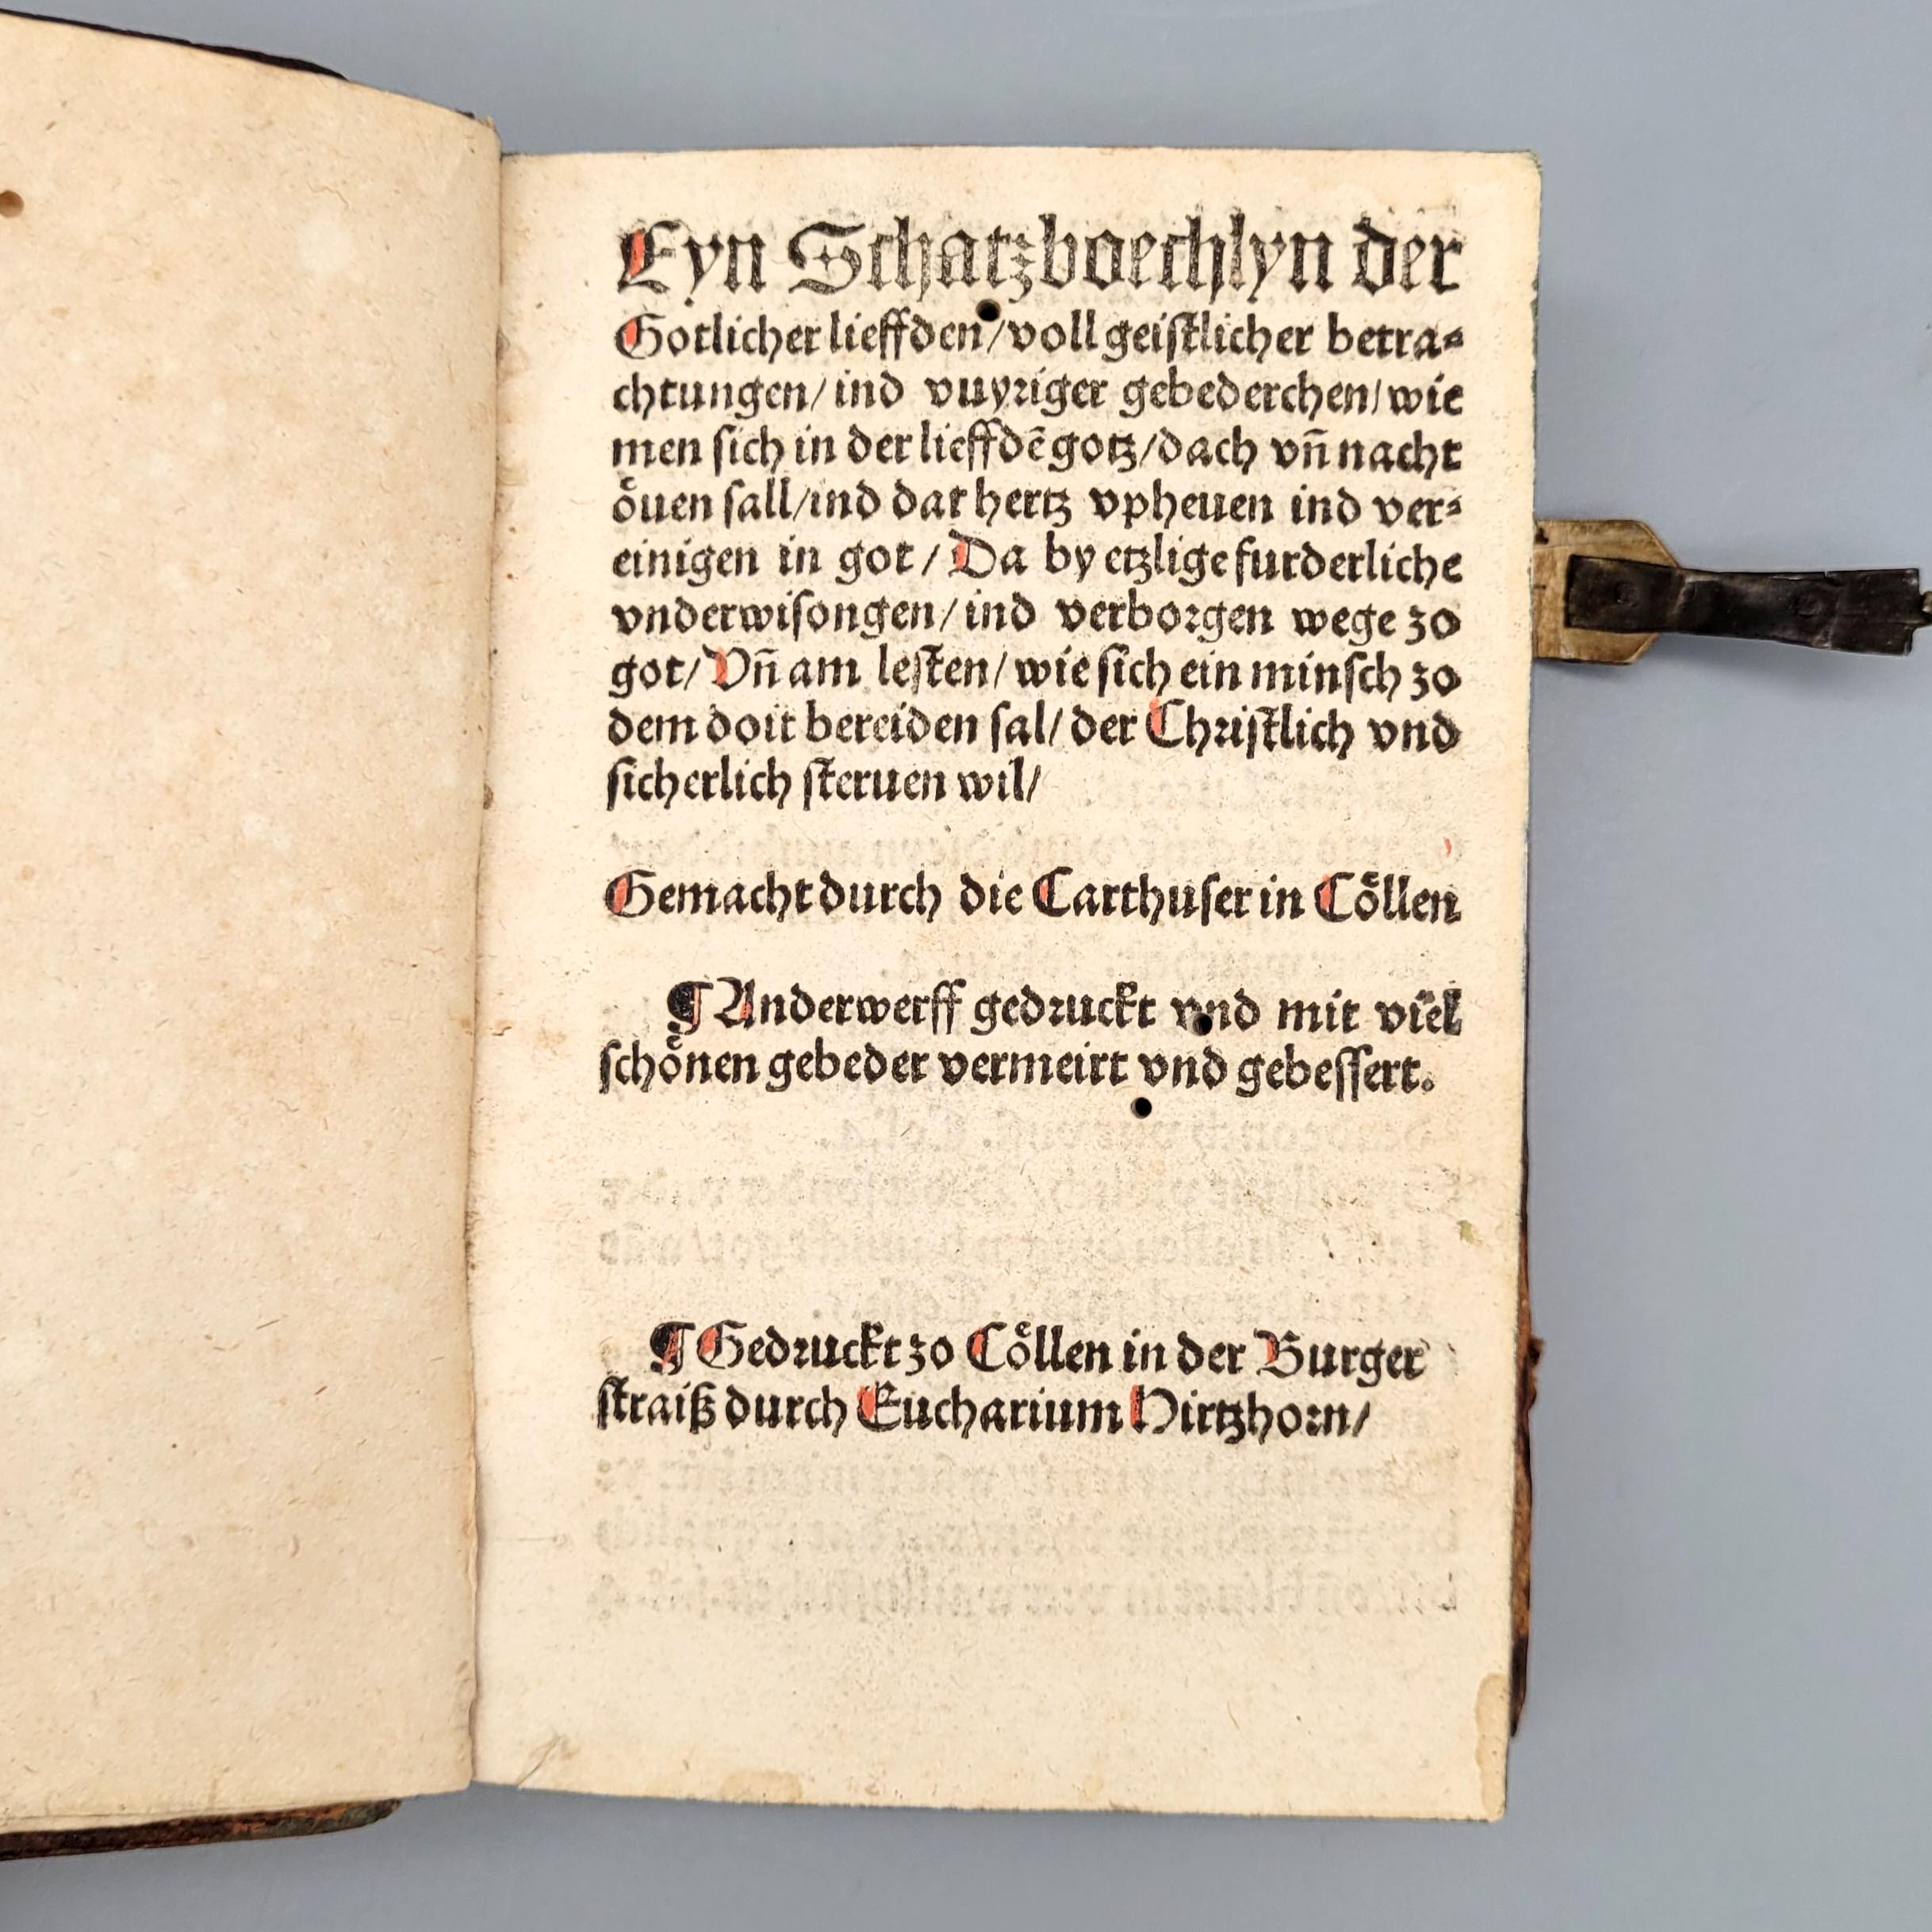 Eyn Schatzboechlyn der
Gotlicher lieffden/voll geistlicher betra-
chtungen/ind vuyriger gebederchen/wie
men sich in der lieffdē gotz/dach vñ nacht
oͤuen sall/ind dat hertz vpheuen ind ver-
einigen in got/Da by etzlige furderliche
vnderwisongen/ind verborgen wege zo
got/Vñ am lesten/wie sich ein minsch zo
dem doit bereiden sal/der Christlich vnd
sicherlich steruen wil/
Gemacht durch die Carthuser in Coͤllen
¶ Anderwerff gedruckt vnd mit viel
schoͤnen gebeder vermeirt vnd gebessert.
¶ Gedruckt zo Coͤllen in der Burger
straiß durch Eucharium Hirtzhorn/